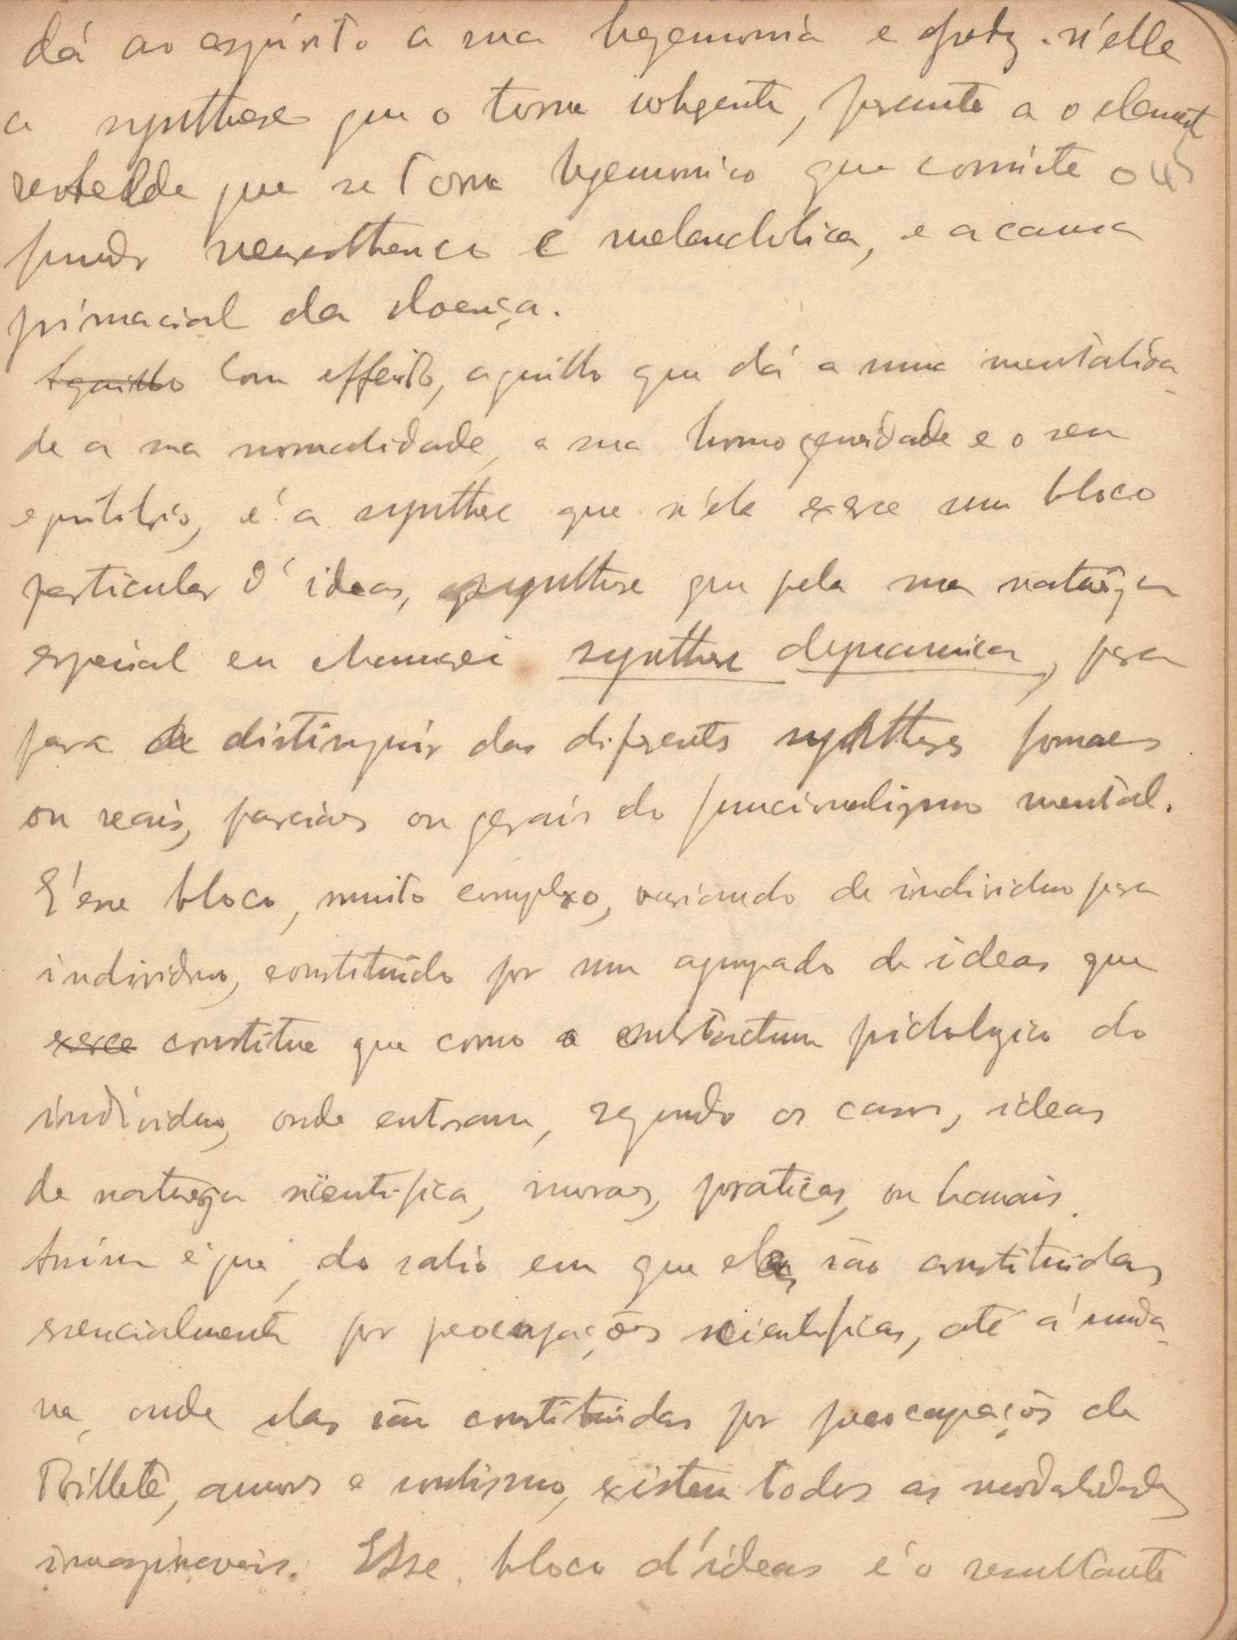 dá ao espirito a sua hegemonia e n'elle
a synthese que o torna cohgente, perante a o element
rebelde que se torna hgemonico que consiste o
fundo neurasthenco e melancholica, e a causa
primacial da doença.
Aquillo Com effeito, aquillo que dá a uma mentalida
de a sua normalidade, a sua homogeneidade e o seu
equilibrio, é a synthese que n'ela exerce um bloco
particular d'ideas, synthese que pela sua natureza
especial eu chamarei synthese dynamica, para
para distinguir das diferents syntheses formaes
ou reais, parciaes ou gerais do funcionalismo mental.
É esse bloco, muito complexo, variando de individuo para
individuo, constituido por um agrupado de ideas que
exerce constitue que como o substractum psicholgico do
individuo, onde entram, segundo os casos, ideas
de natureza scientifica, moraes, praticas, ou banais.
Assim é que, do sabio em que elas são constituidas
essencialmente por preocupações scientificas, até á munda
na, onde elas são constituidas por preocupações de
toillete, amores e existem todas as modalidades
imaginaveis. Esse bloco d'ideas é o resultante